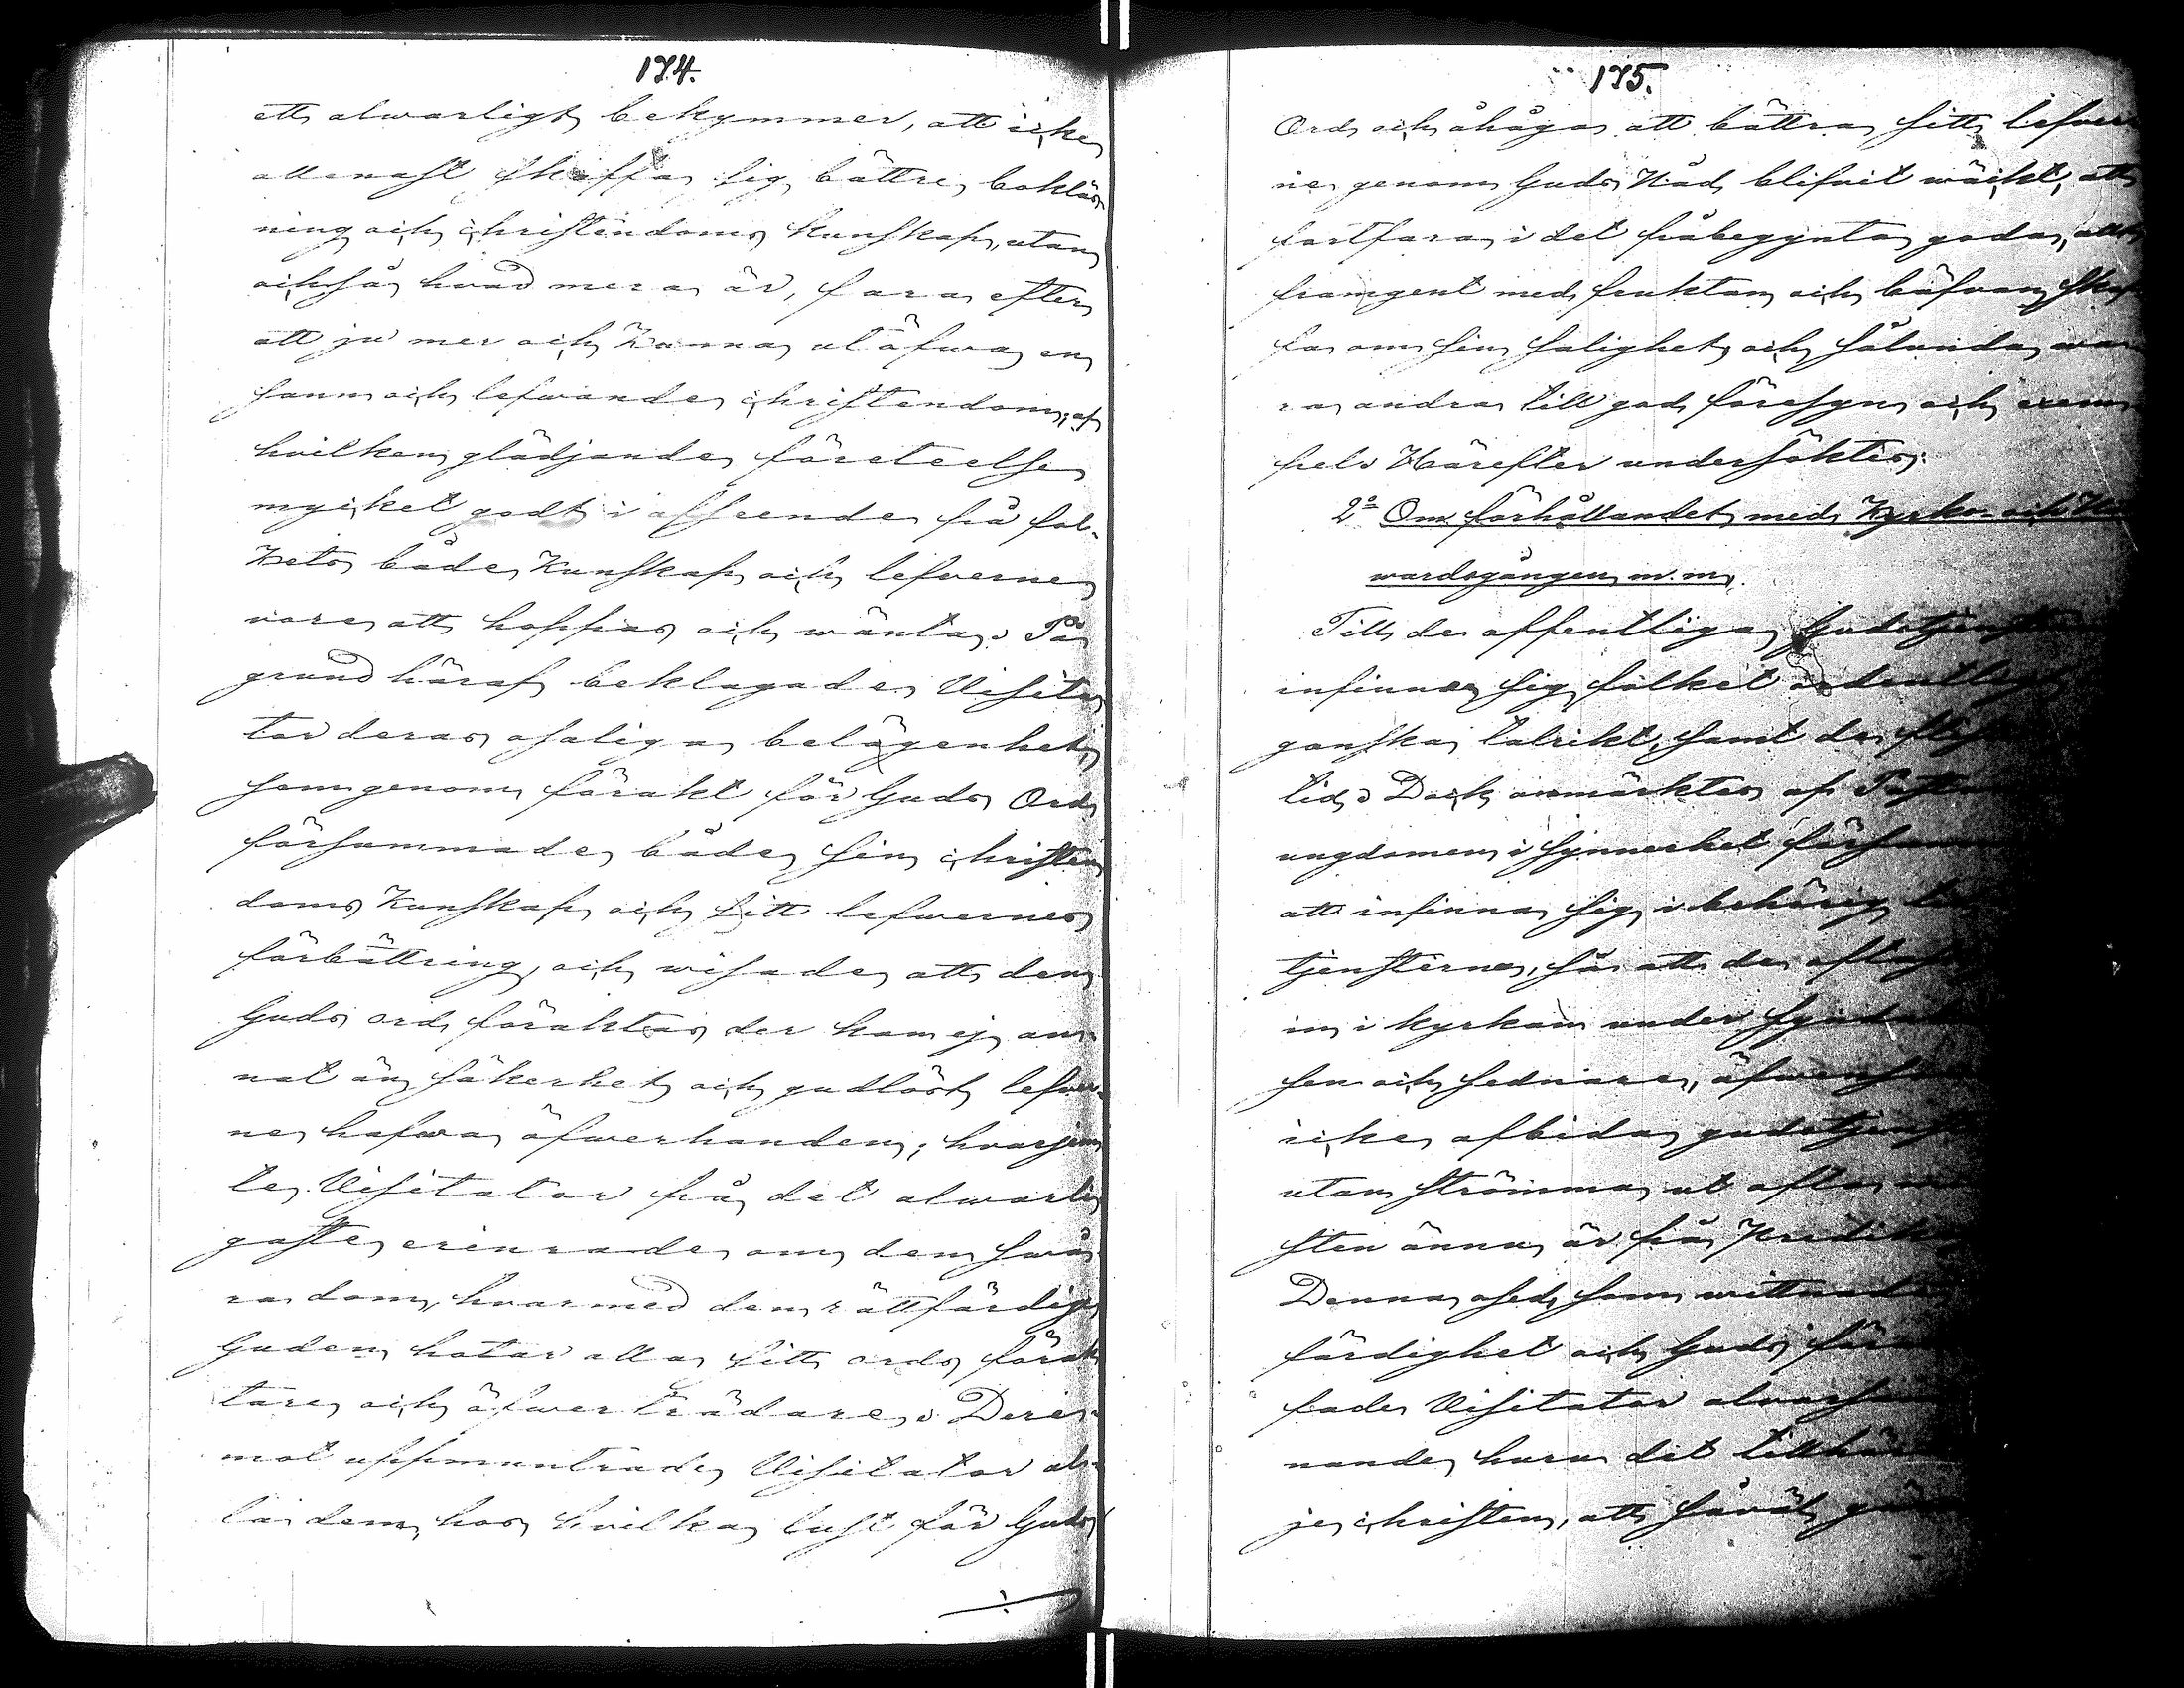 174.
ett alwarligt bekymmer, att icke
allenast skaffa sig bättre bokläs-
ning och christendoms kunskap, utan
ochså hvad mera är, fara efter
att ju mer och kunna utöfwa en
sann och lefwande christendom; af
hvilken glädjande företeelse
mycket godt i afseende på fol-
kets både kunskap och lefwerne
vore att hoppas och wänta. På
grund häraf beklagade Visita
tor deras osaliga belägenhet,
som genom förakt för Guds Ord
försummade både sin christen
doms kunskap och sitt lefwernes
förbättring, och wisade att der
Guds ord föraktas der kan ej an-
nat än säkerhet och gudlöst lefwer-
ne hafwa öfwerhanden; hvarjem
te Visitator på det alwarli
gaste erinrade om den swå
ra dom, hvarmed den rättfärdige
Guden hotar alla sitt ords förak
tare och öfwerträdare. DerE-
mot uppmuntrade Visitator al-
la dem, hos hvilka lust för Guds
175.
Ord och åhåga att bättra sitt lefwer
ne genom Guds Nåd blifvit wäckt, att
fortfara i det påbegynta goda, att
framgent med fruktan och bäfwan skaf
fa om sin salighet och sålunda wa
ra andra till god föresyn och exem
pel. Härefter undersöktes:
2º Om förhållandet med Kyrko- och
wardsgången m.m.
Till de offentliga Gudstjenst
infinner sig folket ordentlig
ganska talrikt, samt de flesta
tid. Dock anmärktes af Past
ungdomen i synnerhet försum
att infinna sig i behörig
tjensterne, så att de oftast
in i kyrkan under synda
sen och sednare, äfwensom
icke afbida gudstjenst
utan strömma ut ofta
sten ännu är på Predik
Denna osed, som wittnade
färdighet och Guds för
fade Visitator alwars
nande, huru det tillhör
je christen, att såväl